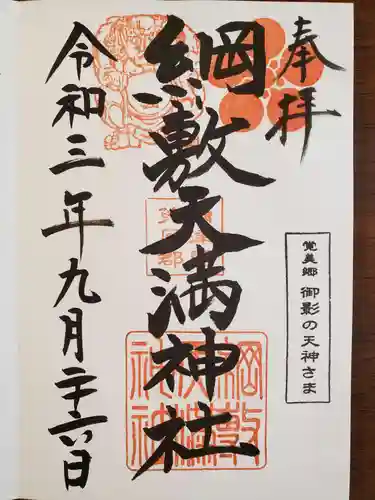 奉拝
覚美郷 御影の天神さま
綱敷天満神社
綱敷
天満
神社
令和三年九月二十六日